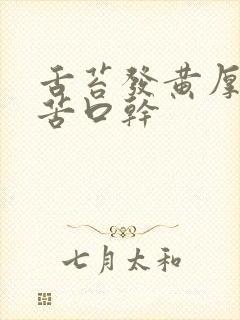 舌苔發黃厚
苦口幹
七月太和